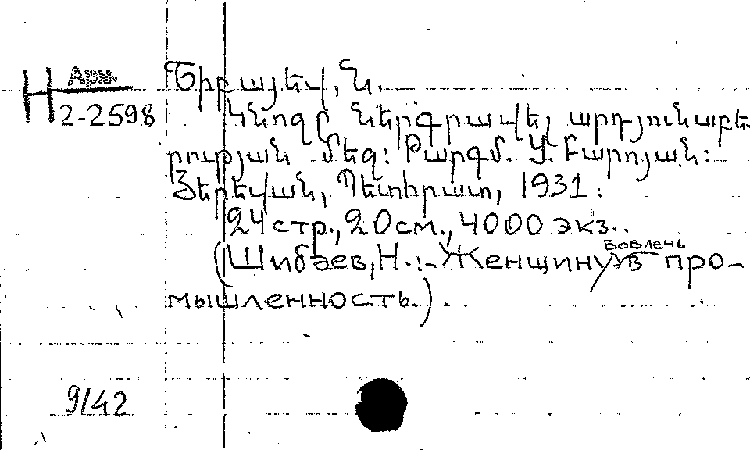 Н Арм.
2-2598
Շիբայեվ, Ն.
Կնոջը ներգրավել արդյունաբե
րության մեջ: Թարգմ. Ս. Բարոյան:
Յերեվան, Պետհրատ, 1931:
24 стр., 20 см., 4000 экз.
(Шибаев, Н. :- Женщину вовлечь в про-
мышленность.)
9/42